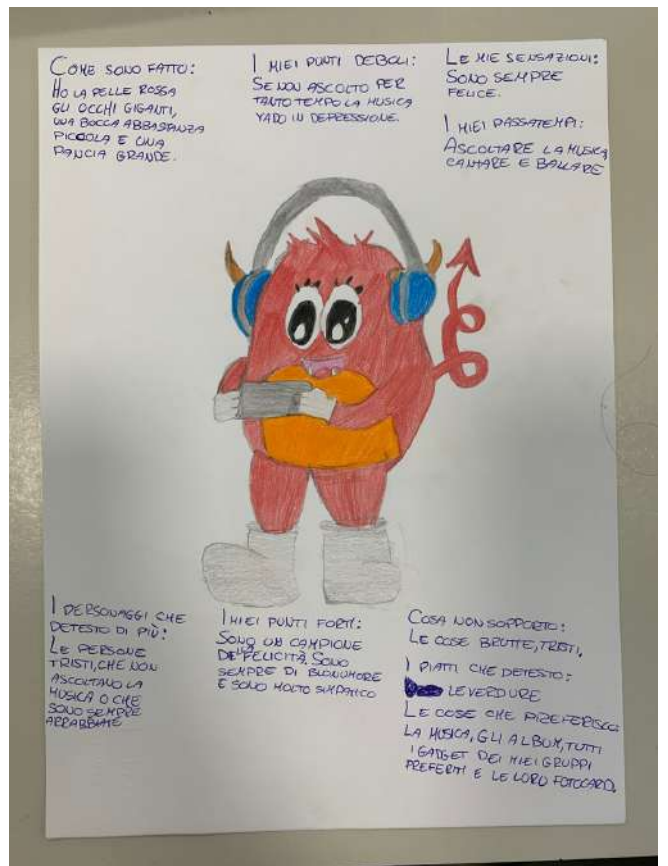 COME SONO FATTO:
HO LA PELLE ROSSA
GLI OCCHI GIGANTI,
UNA BOCCA ABBASTANZA
PICCOLA E UNA
PANCIA GRANDE.
I MIEI PUNTI DEBOLI:
SE NON ASCOLTO PER
TANTO TEMPO LA MUSICA
VADO IN DEPRESSIONE.
LE MIE SENSAZIONI:
SONO SEMPRE
FELICE.
I MIEI PASSATEMPI:
ASCOLTARE LA MUSICA,
CANTARE E BALLARE
I PERSONAGGI CHE
DETESTO DI PIÙ:
LE PERSONE
TRISTI, CHE NON
ASCOLTANO LA
MUSICA O CHE
SONO SEMPRE
ARRABBIATE
I MIEI PUNTI FORTI:
SONO UN CAMPIONE
DELLA FELICITÀ. SONO
SEMPRE DI BUONUMORE
E SONO MOLTO SIMPATICO
COSA NON SOPPORTO:
LE COSE BRUTTE, TRISTI,
I PIATTI CHE DETESTO:
LE VERDURE
LE COSE CHE PREFERISCO:
LA MUSICA, GLI ALBUM, TUTTI
I GADGET DEI MIEI GRUPPI
PREFERITI E LE LORO FOTOCARD.